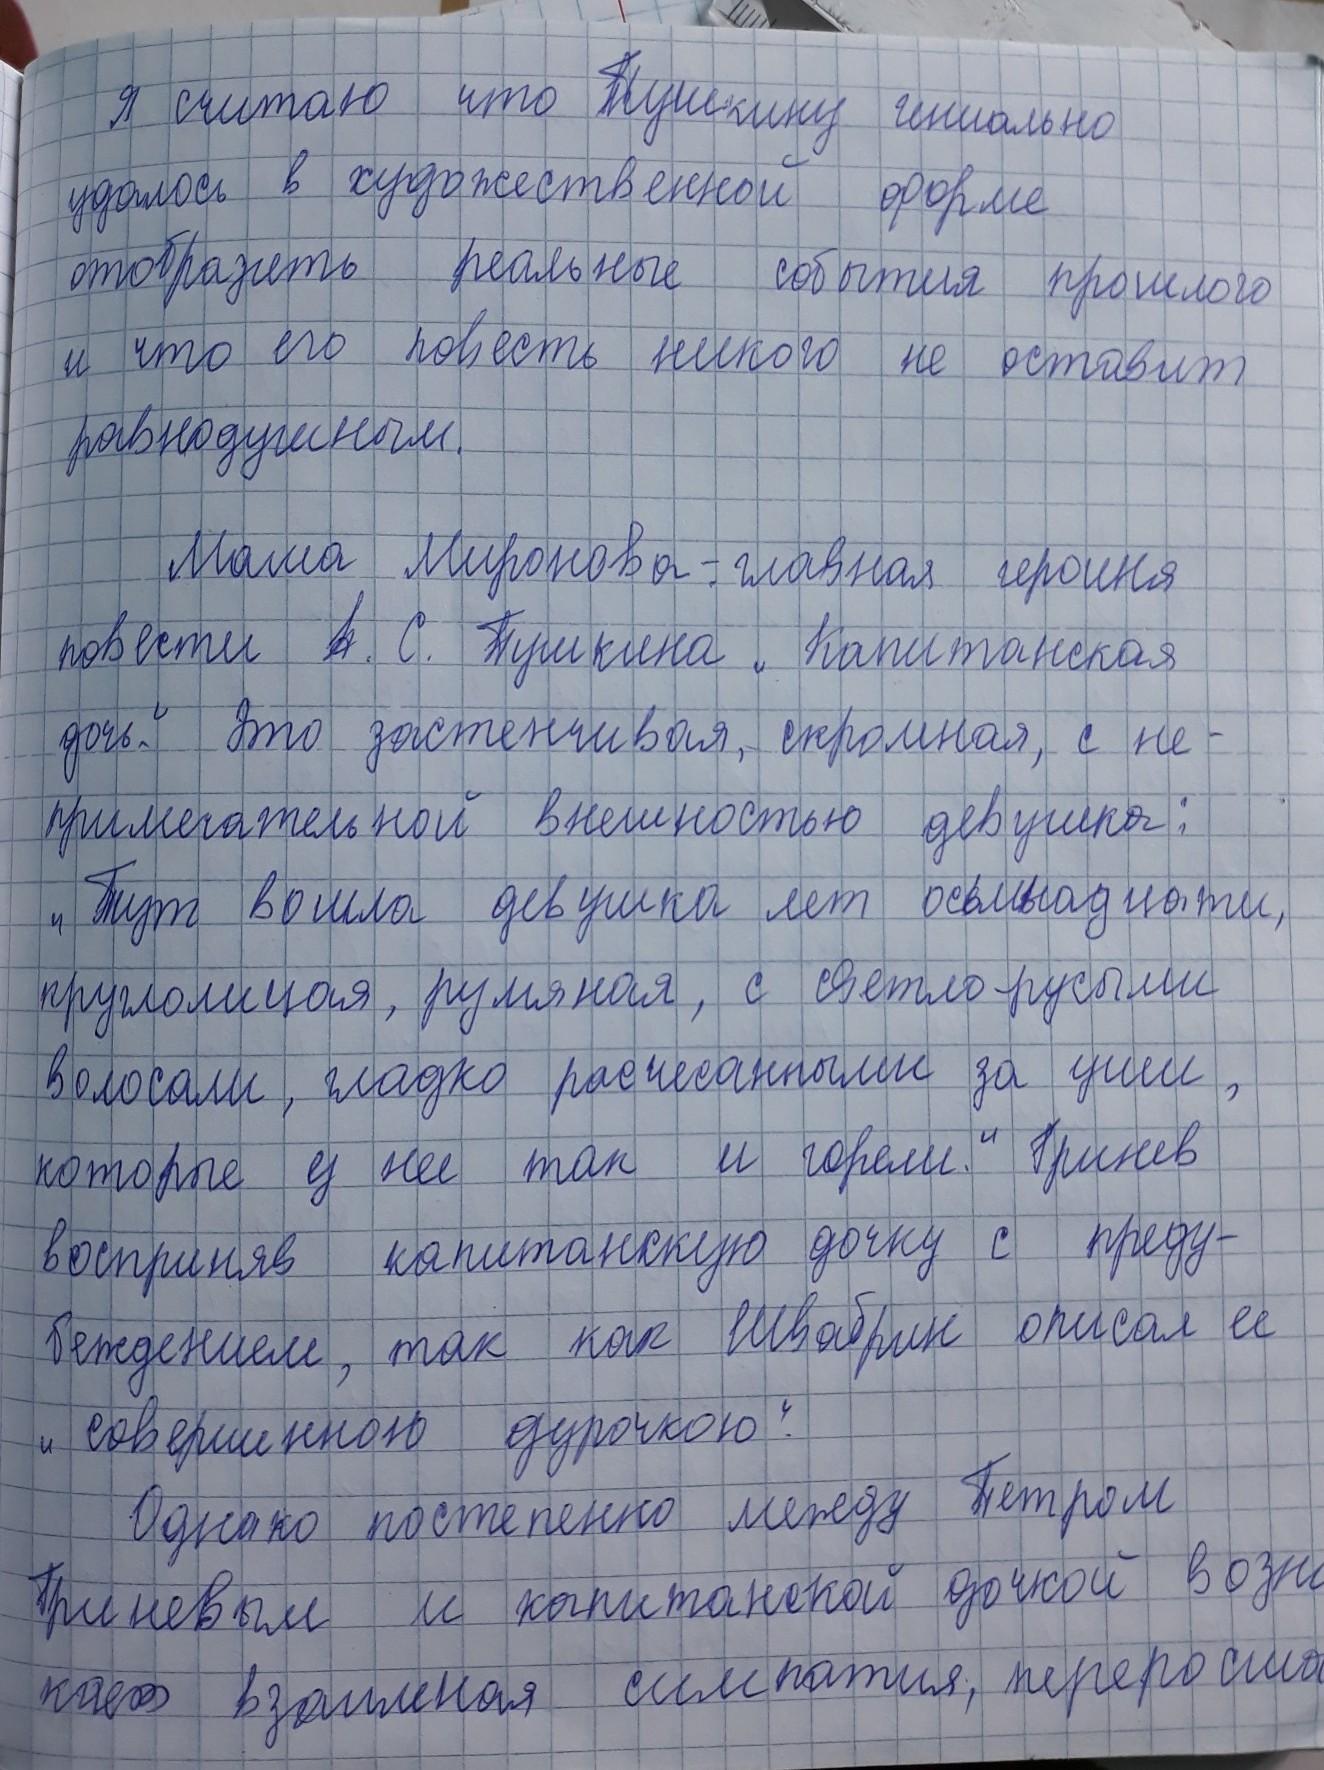 Я считаю что Пушкину гениально
удалось в художественной форме
отобразить реальные события прошлого
и что его повесть никого не оставит
равнодушным.
Маша Миронова - главная героиня
повести А. С. Пушкина „Капитанская
дочь.“ Это застенчивая, скромная, с не-
примечательной внешностью девушка:
„Тут вошла девушка лет осьмнадцати,
круглолицая, румяная, с светло-русыми
волосами, гладко расчесанными за уши,
которые у нее так и горели.“ Гринев
восприняв капитанскую дочку с преду-
беждением, так как Швабрин описал ее
„совершенною дурочкою“.
Однако постепенно между Петром
Гриневым и капитанской дочкой возни
взаимная симпатия, переросша